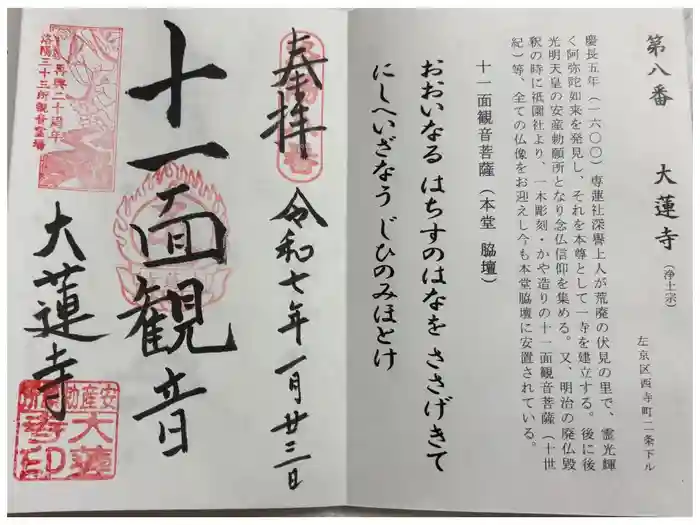 第八番　大蓮寺（浄土宗）
左京区西寺町二条下ル
慶長五年（一六〇〇）専蓮社深譽上人が荒廃の伏見の里で、霊光輝
く阿弥陀如来を発見し、それを本尊として一寺を建立する。後に後
光明天皇の安産勅願所となり念仏信仰を集める。又、明治の廃仏毀
釈の時に祗園社より、一木彫刻・かや造りの十一面観音菩薩（十世
紀）等、全ての仏像をお迎えし今も本堂脇壇に安置されている。
十一面観音菩薩（本堂　脇壇）
おおいなる はちすのはなを ささげきて
にしへいざなう じひのみほとけ
奉拝
令和七年一月廿三日
十一面観音
大蓮寺
再興二十周年
洛陽三十三所観音霊場
安産勅願所
大蓮寺印